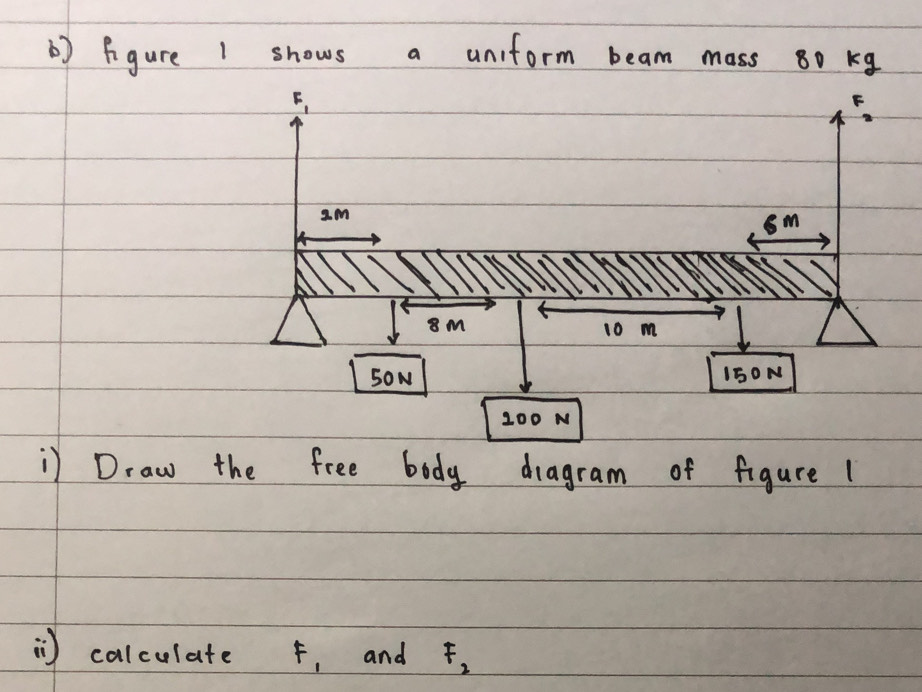 b) figure 1 shows a uniform beam mass 80 kg
F1 F2
2M 6 m
8 M 10 m
50 N 150 N
200 N
i) Draw the free body diagram of figure 1
ii) calculate F1 and F2